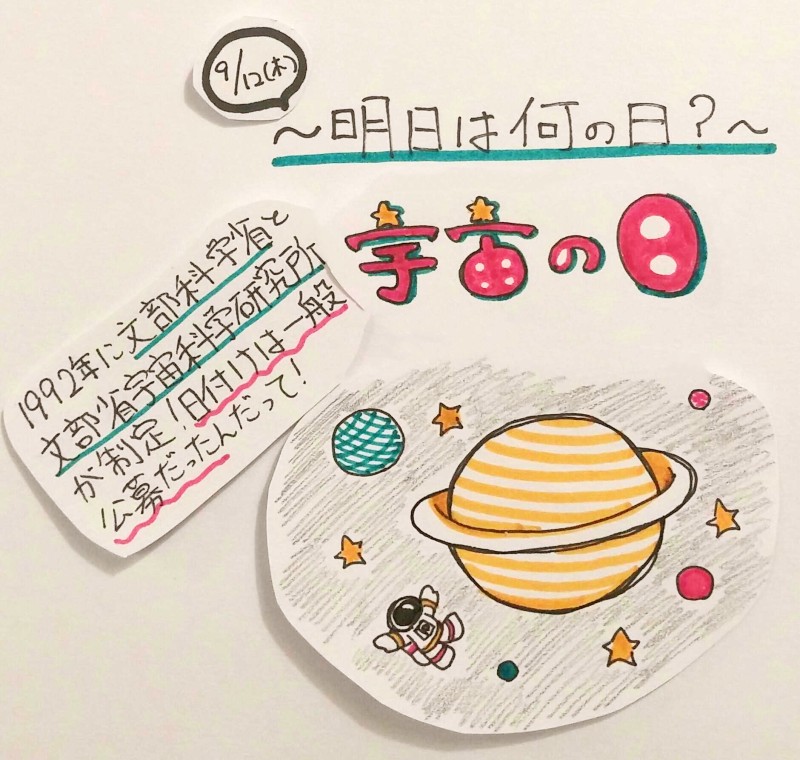 9/12(木)
～明日は何の日？～
宇宙の日
1992年に文部科学省と
文部省宇宙科学研究所
が制定！日付けは一般
公募だったんだって！